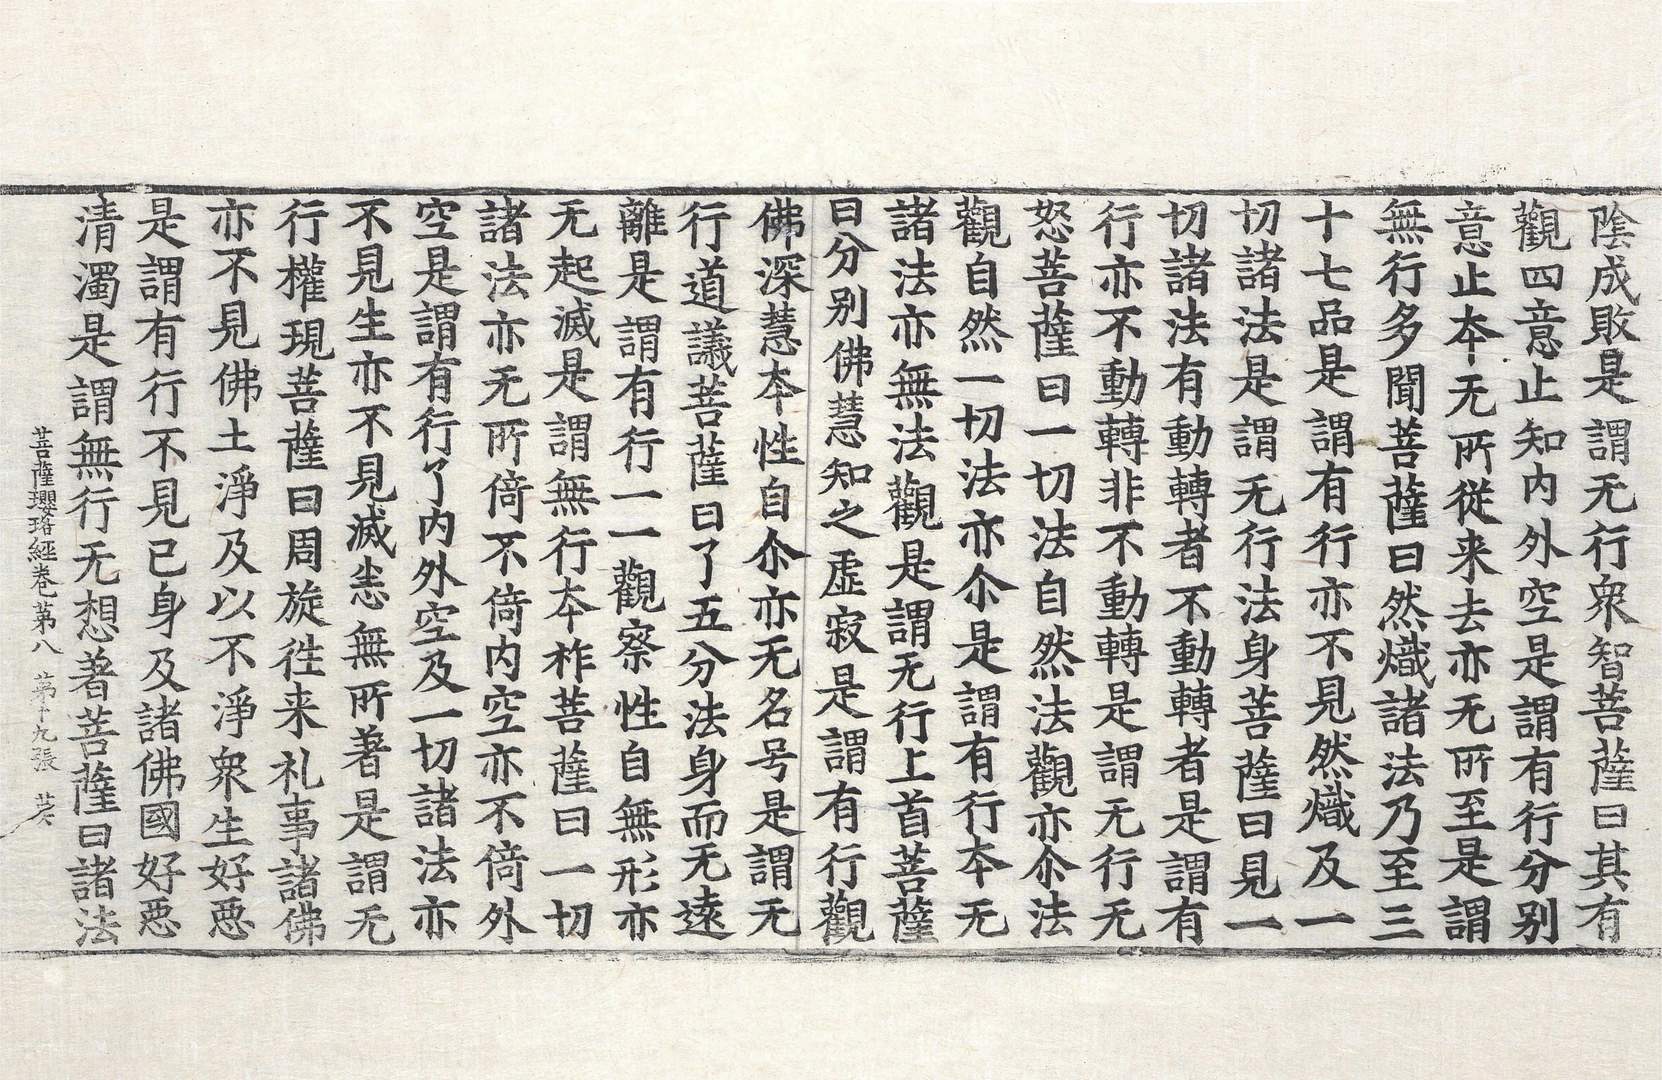 陰成敗是謂无行衆智菩薩曰其有
觀四意止知内外空是謂有行分别
意止夲无所従来去亦无所至是謂
無行多聞菩薩曰然熾諸法乃至三
十七品是謂有行亦不見然熾及一
切諸法是謂无行法身菩薩曰見一
切諸法有動轉者不動轉者是謂有
行亦不動轉非不動轉是謂无行无
怒菩薩曰一切法自然法觀亦尒法
觀自然一切法亦尒是謂有行夲无
諸法亦無法觀是謂无行上首菩薩
曰分别佛慧知之虚寂是謂有行觀
佛深慧夲性自尒亦无名号是謂无
行道議菩薩曰了五分法身而无逺
離是謂有行一一觀察性自無形亦
无起滅是謂無行夲祚菩薩曰一切
諸法亦无所倚不倚内空亦不倚外
空是謂有行了内外空及一切諸法亦
不見生亦不見滅恙無所著是謂无
行權現菩薩曰周旋徃来礼事諸佛
亦不見佛土淨及以不淨衆生好惡
是謂有行不見已身及諸佛國好惡
清濁是謂無行无想著菩薩曰諸法
菩薩瓔珞經卷第八 第十九張